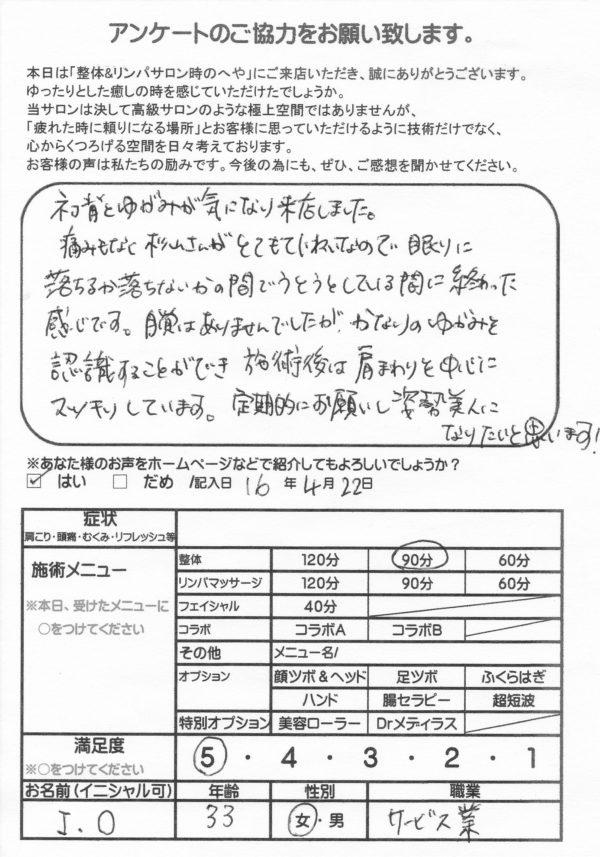 アンケートのご協力をお願い致します。
本日は「整体&リンパサロン時のへや」にご来店いただき、誠にありがとうございます。
ゆったりとした癒しの時を感じていただけたでしょうか。
当サロンは決して高級サロンのような極上空間ではありませんが、
「疲れた時に頼りになる場所」とお客様に思っていただけるように技術だけでなく、
心からくつろげる空間を日々考えております。
お客様の声は私たちの励みです。今後の為にも、ぜひ、ご感想を聞かせてください。
背とゆがみが気になり来店しました。
痛みもなく杉山さんがとてもていねいなので眠りに
落ちるか落ちないかの間でうとうとしている間に終わった
感じです。はありませんでしたが、かなりのゆがみを
認識することができ施術後は肩まわりを中心に
スッキリしています。定期的にお願いし姿勢美人に
なりたいと思います!
※あなた様のお声をホームページなどで紹介してもよろしいでしょうか?
はい だめ /記入日 16 年 4 月 22 日
症状
肩こり・頭痛・むくみ・リフレッシュ等
施術メニュー
※本日、受けたメニューに
○をつけてください
整体 120分 90分 60分
リンパマッサージ 120分 90分 60分
フェイシャル 40分
コラボ コラボA コラボB
その他 メニュー名/
オプション 顔ツボ&ヘッド 足ツボ ふくらはぎ
ハンド 腸セラピー 超短波
特別オプション 美容ローラー Drメディラス
満足度
※○をつけてください
5・4・3・2・1
お名前(イニシャル可) 年齢 性別 職業
J.O 33 女・男 サービス業